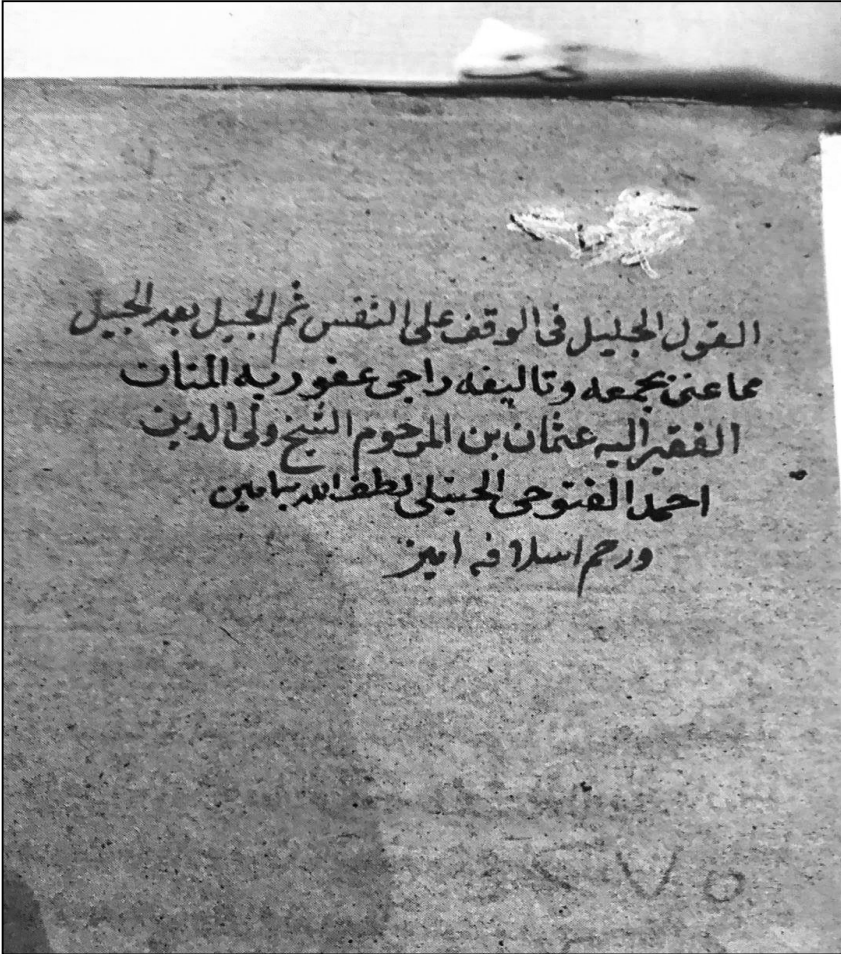 القول الجليل في الوقف على النفس ثم الجيل بعد الجيل
مما عنى بجمعه وتاليفه راجى عفو ربه المنان
الفقير اليه عثمان بن المرحوم الشيخ ولى الدين
احمد الفتوحى الحنبلى لطف الله بهما مين
ورحم اسلافه امين